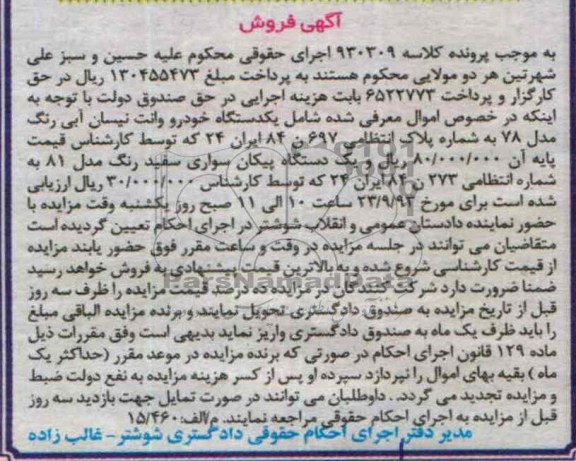 آگهی فروش
به موجب پرونده کلاسه ۹۳۰۳۰۹ اجرای حقوقی محکوم علیه حسین و سبز علی
شهرتین هر دو مولایی محکوم هستند به پرداخت مبلغ ۱۳۰۴۵۵۴۷۳ ریال در حق
کارگزار و پرداخت ۶۵۲۲۷۷۳ بابت هزینه اجرایی در حق صندوق دولت با توجه به
اینکه در خصوص اموال معرفی شده شامل یکدستگاه خودرو وانت نیسان آبی رنگ
مدل ۷۸ به شماره پلاک انتظامی ۶۹۷ ن ۸۴ ایران ۲۴ که توسط کارشناس قیمت
پایه آن ۸۰/۰۰۰/۰۰۰ ریال و یک دستگاه پیکان سواری سفید رنگ مدل ۸۱ به
شماره انتظامی ۲۷۳ ن ۸۴ ایران ۲۴ که توسط کارشناس ۳۰/۰۰۰/۰۰۰ ریال ارزیابی
شده است برای مورخ ۲۳/۹/۹۳ ساعت ۱۰ الی ۱۱ صبح روز یکشنبه وقت مزایده با
حضور نماینده دادستان عمومی و انقلاب شوشتر در اجرای احکام تعیین گردیده است
متقاضیان می توانند در جلسه مزایده در وقت و ساعت مقرر فوق حضور یابند مزایده
از قیمت کارشناسی شروع شده و به بالاترین قیمت پیشنهادی به فروش خواهد رسید
ضمنا ضرورت دارد شرکت کنندگان در مزایده ده درصد قیمت مزایده را ظرف سه روز
قبل از تاریخ مزایده به صندوق دادگستری تحویل نمایند و برنده مزایده الباقی مبلغ
را باید ظرف یک ماه به صندوق دادگستری واریز نماید بدیهی است وفق مقررات ذیل
ماده ۱۲۹ قانون اجرای احکام در صورتی که برنده مزایده در موعد مقرر (حداکثر یک
ماه) بقیه بهای اموال را نپردازد سپرده او پس از کسر هزینه مزایده به نفع دولت ضبط
و مزایده تجدید می گردد. . داوطلبان می توانند در صورت تمایل جهت بازدید سه روز
قبل از مزایده به اجرای احکام حقوقی مراجعه نمایند. م/الف:۱۵/۴۶۰
مدیر دفتر اجرای احکام حقوقی دادگستری شوشتر - غالب زاده
ParsNamadData